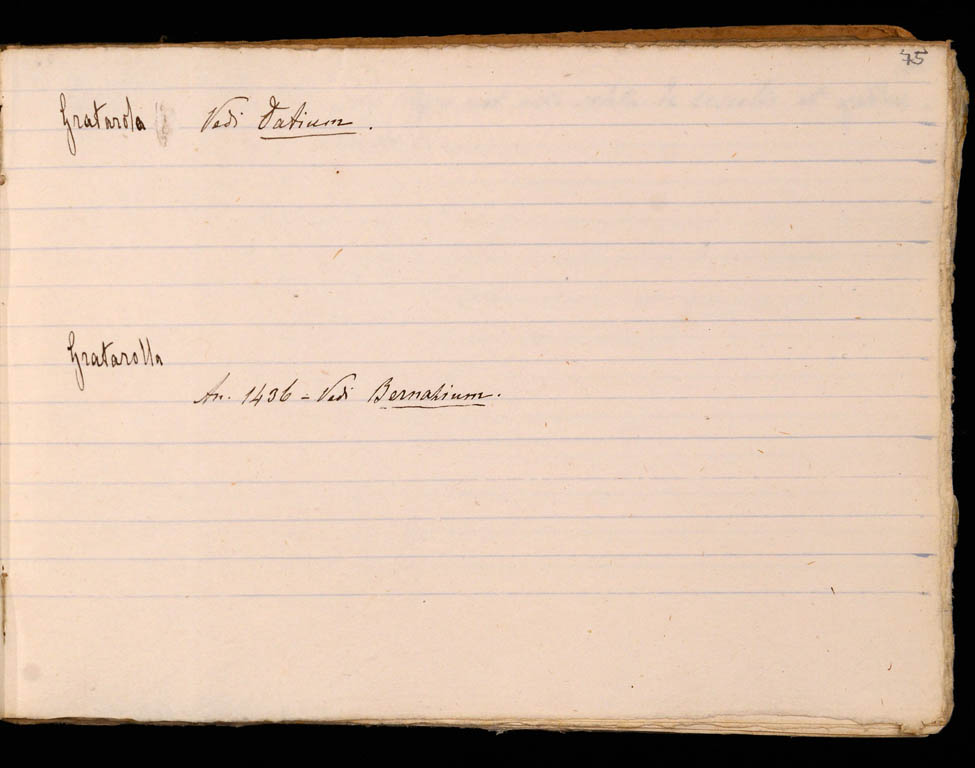 75
Gratarola Vedi Datium.
Gratarolla
An. 1436 = Vedi Bernatium.